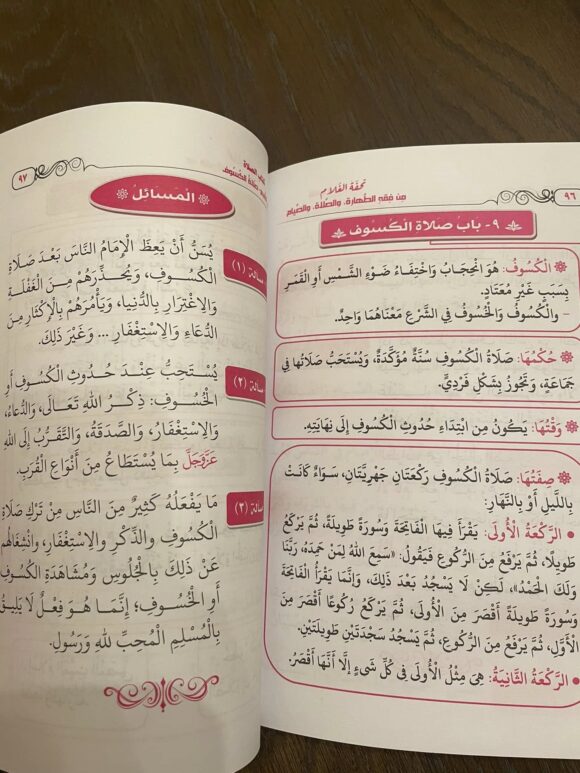 تُحْفَةُ الْغُلَامِ
مِنْ فِقْهِ الطَّهَارَةِ، وَالصَّلَاةِ، وَالصِّيَامِ
٩٦
٩- بَابُ صَلَاةِ الْكُسُوفِ
الْكُسُوفُ: هُوَ انْحِجَابُ وَاخْتِفَاءُ ضَوْءِ الشَّمْسِ أَوِ الْقَمَرِ
بِسَبَبٍ غَيْرِ مُعْتَادٍ.
- وَالْكُسُوفُ وَالْخُسُوفُ فِي الشَّرْعِ مَعْنَاهُمَا وَاحِدٌ.
حُكْمُهَا: صَلَاةُ الْكُسُوفِ سُنَّةٌ مُؤَكَّدَةٌ، وَيُسْتَحَبُّ صَلَاتُهَا فِي
جَمَاعَةٍ، وَتَجُوزُ بِشَكْلٍ فَرْدِيٍّ.
وَقْتُهَا: يَكُونُ مِنِ ابْتِدَاءِ حُدُوثِ الْكُسُوفِ إِلَى نِهَايَتِهِ.
صِفَتُهَا: صَلَاةُ الْكُسُوفِ رَكْعَتَانِ جَهْرِيَّتَانِ، سَوَاءٌ كَانَتْ
بِاللَّيْلِ أَوْ بِالنَّهَارِ:
• الرَّكْعَةُ الْأُولَى: يَقْرَأُ فِيهَا الْفَاتِحَةَ وَسُورَةً طَوِيلَةً، ثُمَّ يَرْكَعُ
طَوِيلًا، ثُمَّ يَرْفَعُ مِنَ الرُّكُوعِ فَيَقُولُ: «سَمِعَ اللهُ لِمَنْ حَمِدَهُ، رَبَّنَا
وَلَكَ الْحَمْدُ»، لَكِنْ لَا يَسْجُدُ بَعْدَ ذَلِكَ، وَإِنَّمَا يَقْرَأُ الْفَاتِحَةَ
وَسُورَةً طَوِيلَةً أَقْصَرَ مِنَ الْأُولَى، ثُمَّ يَرْكَعُ رُكُوعًا أَقْصَرَ مِنَ
الْأَوَّلِ، ثُمَّ يَرْفَعُ مِنَ الرُّكُوعِ، ثُمَّ يَسْجُدُ سَجْدَتَيْنِ طَوِيلَتَيْنِ.
• الرَّكْعَةُ الثَّانِيَةُ: هِيَ مِثْلُ الْأُولَى فِي كُلِّ شَيْءٍ إِلَّا أَنَّهَا أَقْصَرُ.
كِتَابُ الصَّلَاةِ
صَلَاةُ الْكُسُوفِ
٩٧
الْمَسَائِلُ
مسألة (١)
يُسَنُّ أَنْ يَعِظَ الْإِمَامُ النَّاسَ بَعْدَ صَلَاةِ
الْكُسُوفِ، وَيُحَذِّرَهُمْ مِنَ الْغَفْلَةِ
وَالِاغْتِرَارِ بِالدُّنْيَا، وَيَأْمُرَهُمْ بِالْإِكْثَارِ مِنَ
الدُّعَاءِ وَالِاسْتِغْفَارِ ... وَغَيْرَ ذَلِكَ.
مسألة (٢)
يُسْتَحَبُّ عِنْدَ حُدُوثِ الْكُسُوفِ أَوِ
الْخُسُوفِ: ذِكْرُ اللهِ تَعَالَى، وَالدُّعَاءُ،
وَالِاسْتِغْفَارُ، وَالصَّدَقَةُ، وَالتَّقَرُّبُ إِلَى اللهِ
عَزَّوَجَلَّ بِمَا يُسْتَطَاعُ مِنْ أَنْوَاعِ الْقُرَبِ.
مسألة (٣)
مَا يَفْعَلُهُ كَثِيرٌ مِنَ النَّاسِ مِنْ تَرْكِ صَلَاةِ
الْكُسُوفِ وَالذِّكْرِ وَالِاسْتِغْفَارِ، وَانْشِغَالِهُمْ
عَنْ ذَلِكَ بِالْجُلُوسِ وَمُشَاهَدَةِ الْكُسُوفِ
أَوِ الْخُسُوفِ؛ إِنَّمَا هُوَ فِعْلٌ لَا يَلِيقُ
بِالْمُسْلِمِ الْمُحِبِّ لِلهِ وَرَسُولِهِ.